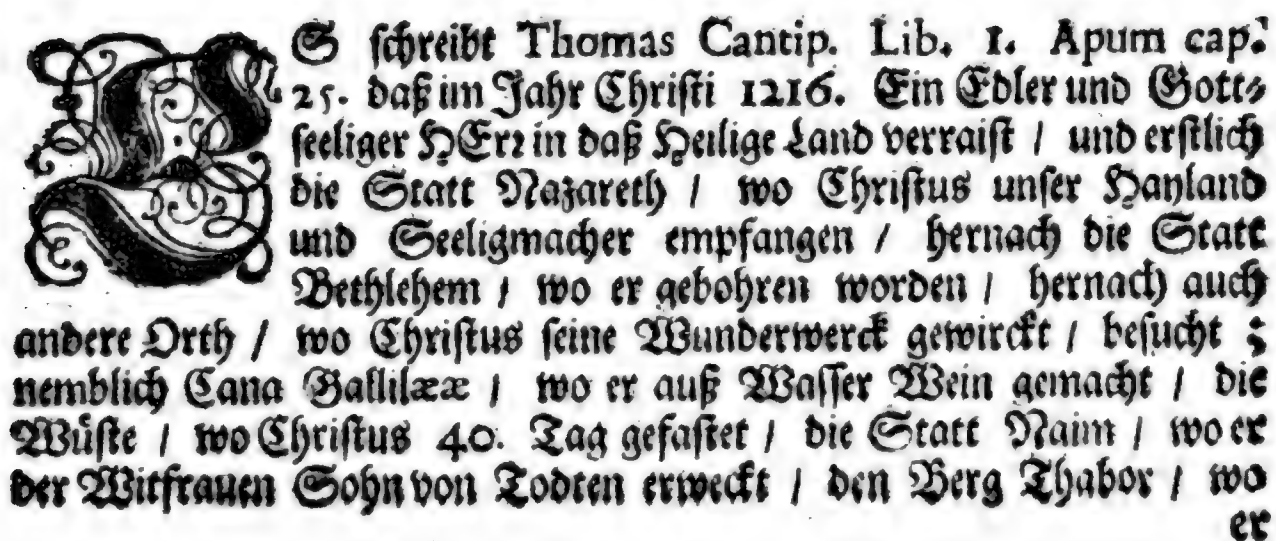 ES schreibt Thomas Cantip. Lib. 1. Apum cap.
25. daß im Jahr Christi 1216. Ein Edler und Gott-
seeliger HErr in daß Heilige Land verraist / und erstlich
die Statt Nazareth / wo Christus unser Hayland
und Seeligmacher empfangen / hernach die Statt
Bethlehem / wo er gebohren worden / hernach auch
andere Orth / wo Christus seine Wunderwerck gewirckt / besucht ;
nemblich Cana Gallilææ / wo er auß Wasser Wein gemacht / die
Wüste / wo Christus 40. Tag gefastet / die Statt Naim / wo er
der Witfrauen Sohn von Todten erweckt / den Berg Thabor / wo
er